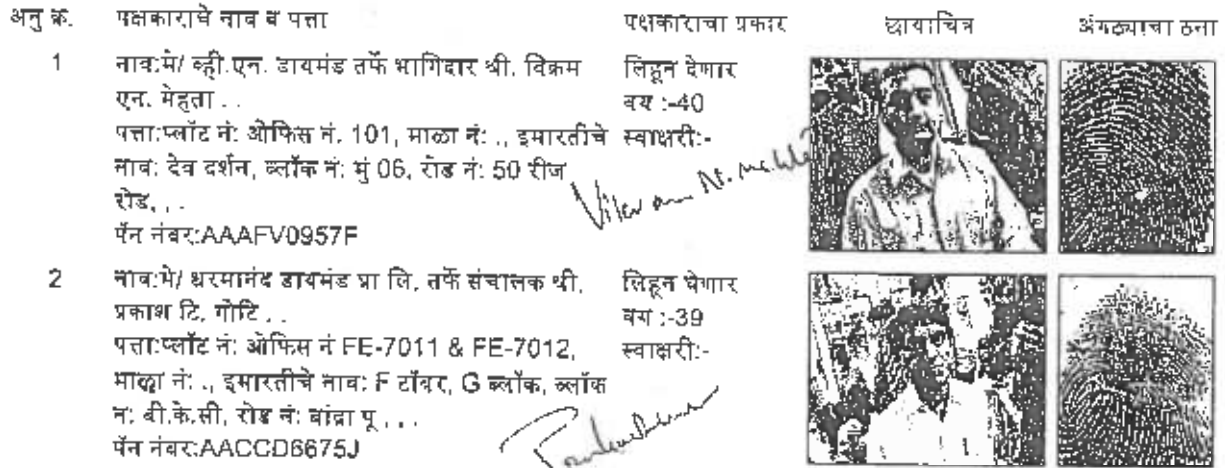 अनु क्र. पक्षकाराचे नाव व पत्ता पक्षकाराचा प्रकार छायाचित्र अंगठ्याचा ठसा
1 नाव:मे/ व्ही.एन. डायमंड तर्फे भागिदार श्री. विक्रम
एन. मेहता . .
पत्ता:प्लॉट नं: ओफिस नं. 101, माळा नं: ., इमारतीचे
नाव: देव दर्शन, ब्लॉक नं: मुं 06, रोड नं: 50 रीज
रोड, . .
पॅन नंबर:AAAFV0957F
लिहून देणार
वय :-40
स्वाक्षरी:-
Vikram N. Mehta
2 नाव:मे/ धरमानंद डायमंड प्रा लि. तर्फे संचालक श्री.
प्रकाश टि. गोटि . .
पत्ता:प्लॉट नं: ओफिस नं FE-7011 & FE-7012,
माळा नं: ., इमारतीचे नाव: F टॉवर, G ब्लॉक, ब्लॉक
नं: बी.के.सी, रोड नं: बांद्रा पू . . .
पॅन नंबर:AACCD6675J
लिहून घेणार
वय :-39
स्वाक्षरी:-